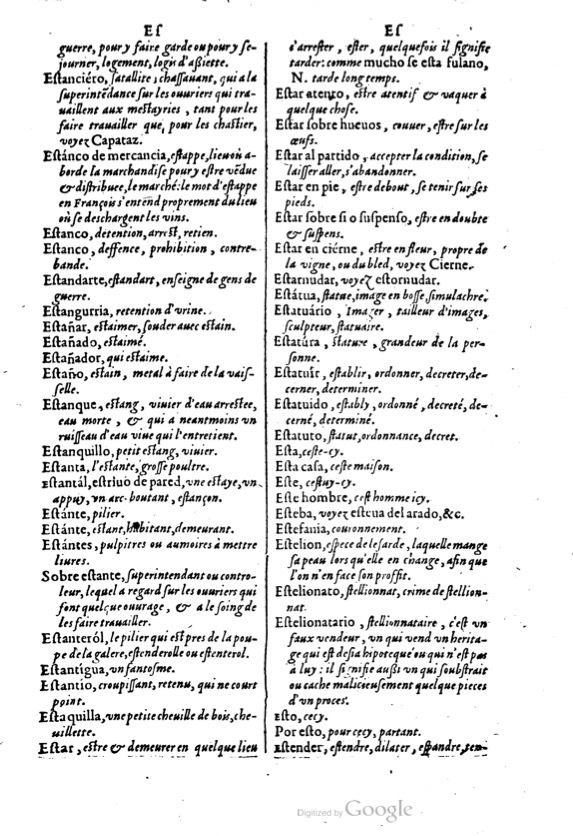 Eſ
guerre, pour y faire garde ou pour y ſe-
journer, logement, logis d'aßiette.
Eſtanciéro, ſatallite, chaſſauant, qui a la
ſuperintẽdance ſur les ouuriers qui tra-
uaillent aux meſtayries, tant pour les
faire trauailler que, pour les chaſtier,
voyez Capataz.
Eſtánco de mercancia, eſtappe, lieu où a-
borde la marchandiſe pour y eſtre vẽdue
& diſtribuee, le marché: le mot d'eſtappe
en François s'entend proprement du lieu
où ſe deſchargent les vins.
Eſtanco, detention, arreſt, retien.
Eſtanco, deffence, prohibition, contre-
bande.
Eſtandarte, eſtandart, enſeigne de gens de
guerre.
Eſtangurria, retention d'vrine.
Eſtañar, eſtaimer, ſouder auec eſtain.
Eſtañado, eſtaimé.
Eſtañador, qui eſtaime.
Eſtaño, eſtain, metal à faire de la vaiſ-
ſelle.
Eſtanque, eſtang, viuier d'eau arreſtee,
eau morte, & qui a neantmoins vn
ruiſſeau d'eau viue qui l'entretient.
Eſtanquillo, petit eſtang, viuier.
Eſtanta, l'eſtante, groſſe poultre.
Eſtantál, eſtriuo de pared, vne eſtaye, vn
appuy, vn arc-boutant, eſtançon.
Eſtánte, pilier.
Eſtánte, eſtant, habitant, demeurant.
Eſtántes, pulpitres ou aumoires à mettre
liures.
Sobre eſtante, ſuperintendant ou contro-
leur, lequel a regard ſur les ouuriers qui
font quelque ouurage, & a le ſoing de
les faire trauailler.
Eſtanteról, le pilier qui eſt pres de la pou-
pe de la galere, eſtenderolle ou eſtenterol.
Eſtantigua, vn fantoſme.
Eſtantio, croupiſſant, retenu, qui ne court
point.
Eſtaquilla, vne petite cheuille de bois, che-
uillette.
Eſtar, eſtre & demeurer en quelque lieu
Eſ
s'arreſter, eſter, quelquefois il ſignifie
tarder: comme mucho ſe eſta fulano,
N. tarde long temps.
Eſtar atento, eſtre atentif & vaquer à
quelque choſe.
Eſtar ſobre hueuos, couuer, eſtre ſur les
œufs.
Eſtar al partido, accepter la condition, ſe
laiſſer aller, s'abandonner.
Eſtar en pie, eſtre debout, ſe tenir ſur ſes
pieds.
Eſtar ſobre ſi o ſuſpenſo, eſtre en doubte
& ſuſpens.
Eſtar en ciérne, eſtre en fleur, propre de
la vigne, ou du bled, voyez Cierne.
Eſtarnudar, voyez eſtornudar.
Eſtátua, ſtatue, image en boſſe, ſimulachre.
Eſtatuário, Imager, tailleur d'images,
ſculpteur, ſtatuaire.
Eſtatúra, ſtature, grandeur de la per-
ſonne.
Eſtatuir, eſtablir, ordonner, decreter, de-
cerner, determiner.
Eſtatuido, eſtably, ordonné, decreté, de-
cerné, determiné.
Eſtatuto, ſtatut, ordonnance, decret.
Eſta, ceſte-cy.
Eſta caſa, ceſte maiſon.
Eſte, ceſtuy-cy.
Eſte hombre, ceſt homme icy.
Eſteba, voyez eſteua del arado, &c.
Eſtefania, couronnement.
Eſtelion, eſpece de leſarde, laquelle mange
ſa peau lors qu'elle en change, afin que
l'on n'en face ſon proffit.
Eſtelionato, ſtellionnat, crime de ſtellion-
nat.
Eſtelionatario, ſtellionnataire, c'eſt vn
faux vendeur, vn qui vend vn herita-
ge qui eſt deſia hipotequé ou qui n'eſt pas
à luy: il ſignifie außi vn qui ſoubſtrait
ou cache malicieuſement quelque pieces
d'vn proces.
Eſto, cecy.
Por eſto, pour cecy, partant.
Eſtender, eſtendre, dilater, eſpandre, ten-
Digitized by Google